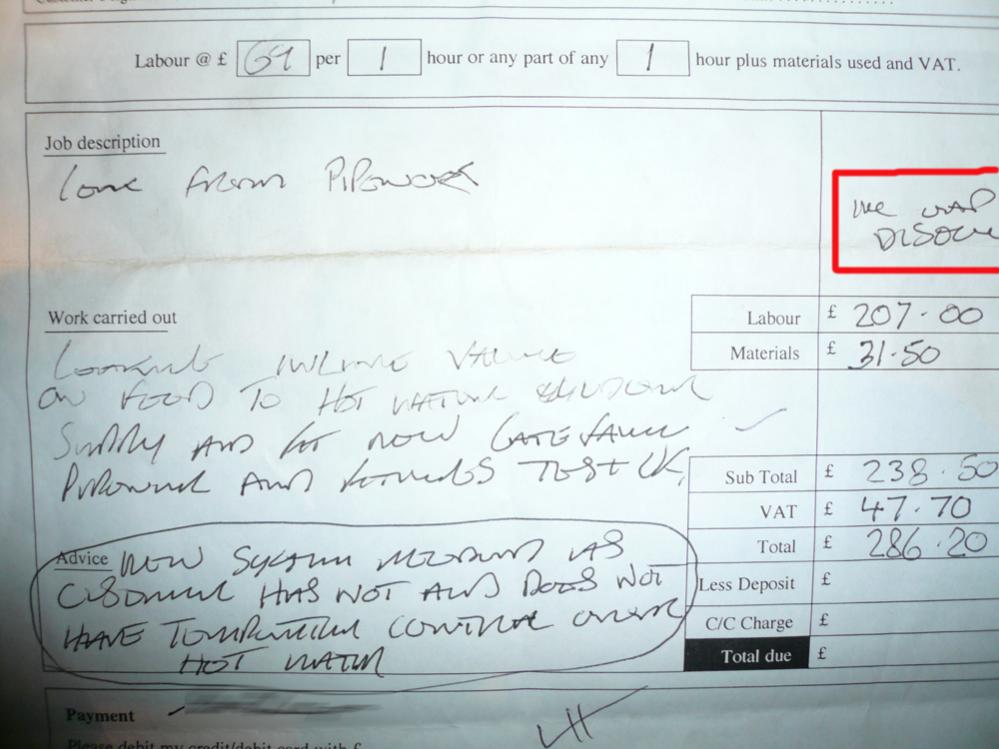 Labour @ £ 69 per 1 hour or any part of any 1 hour plus materials used and VAT.
Job description
FROM PIPEWORK
WE HAD
Work carried out
Labour £ 207.00
Materials £ 31.50
INLINE VALVE
ON FEED TO HOT WATER CYLINDER
SUPPLY AND FIT NEW GATEVALVE
PIPEWORK AND FITTINGS TEST OK.
Sub Total £ 238.50
VAT £ 47.70
Total £ 286.20
Advice NEW SYSTEM NEEDED AS
CUSTOMER HAS NOT AND DOES NOT
HAVE TEMPERATURE CONTROL OVER
HOT WATER
Less Deposit £
C/C Charge £
Total due £
Payment
Please debit my credit/debit card with £